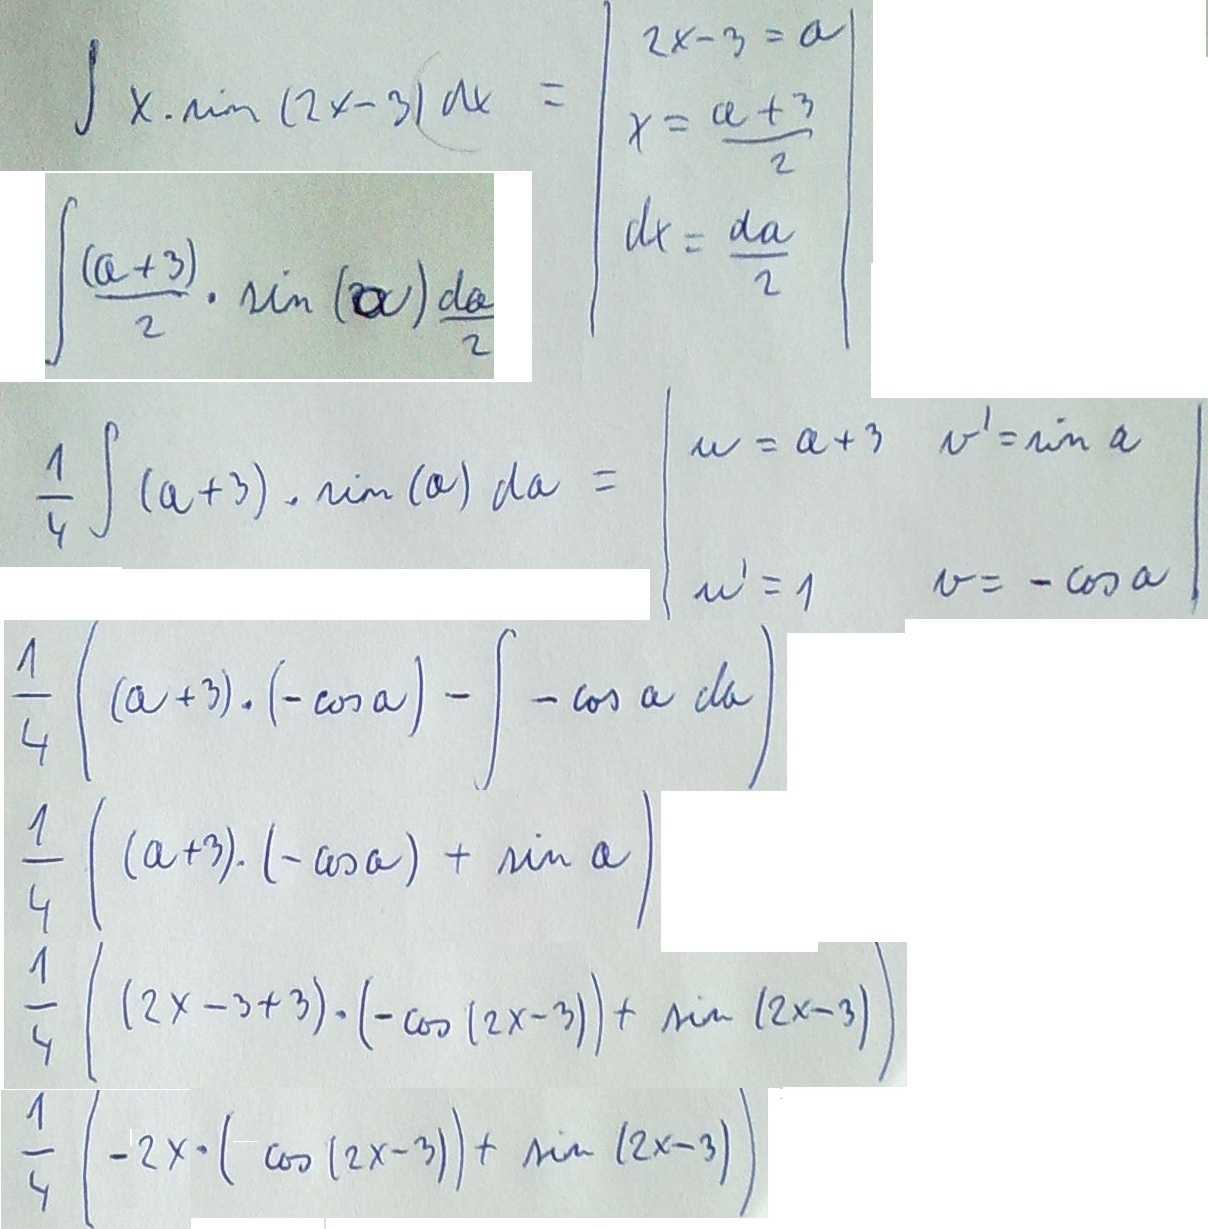 ∫ x · sin (2x-3) dx = | 2x-3 = a |
| x = (a+3)/2 |
| dx = da/2 |
∫ (a+3)/2 · sin (a) da/2
1/4 ∫ (a+3) · sin (a) da = | u = a+3 v' = sin a |
| u' = 1 v = - cos a |
1/4 ( (a+3) · (- cos a) - ∫ - cos a da )
1/4 ( (a+3) · (- cos a) + sin a )
1/4 ( (2x-3+3) · (- cos (2x-3)) + sin (2x-3) )
1/4 ( -2x · ( cos (2x-3)) + sin (2x-3) )